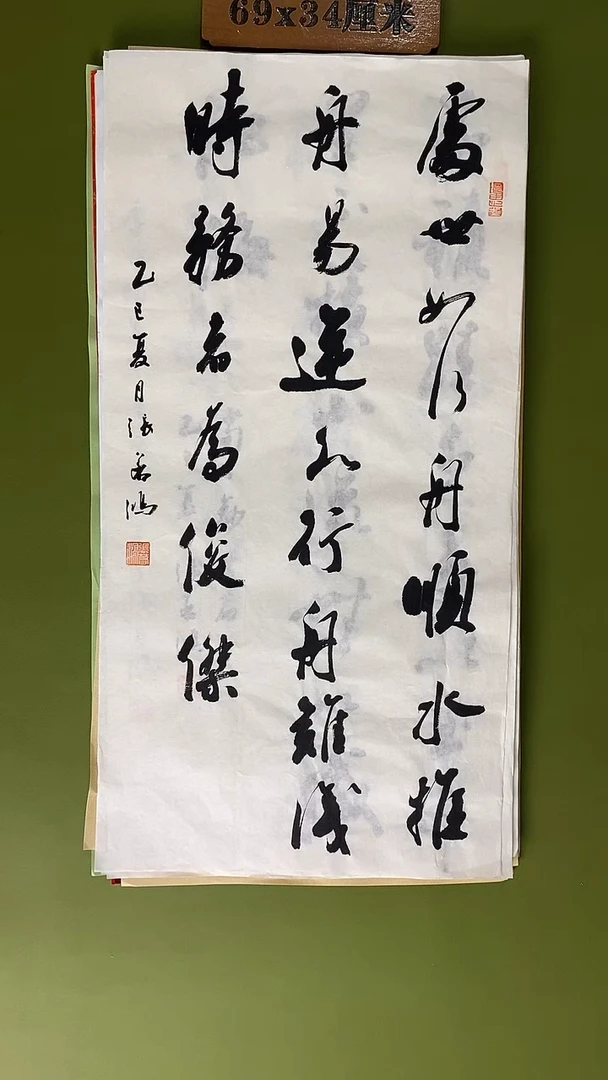 69x34厘米
處世如行舟順水推
舟易逆水行舟難識
時務者為俊傑
乙巳夏月張若鴻